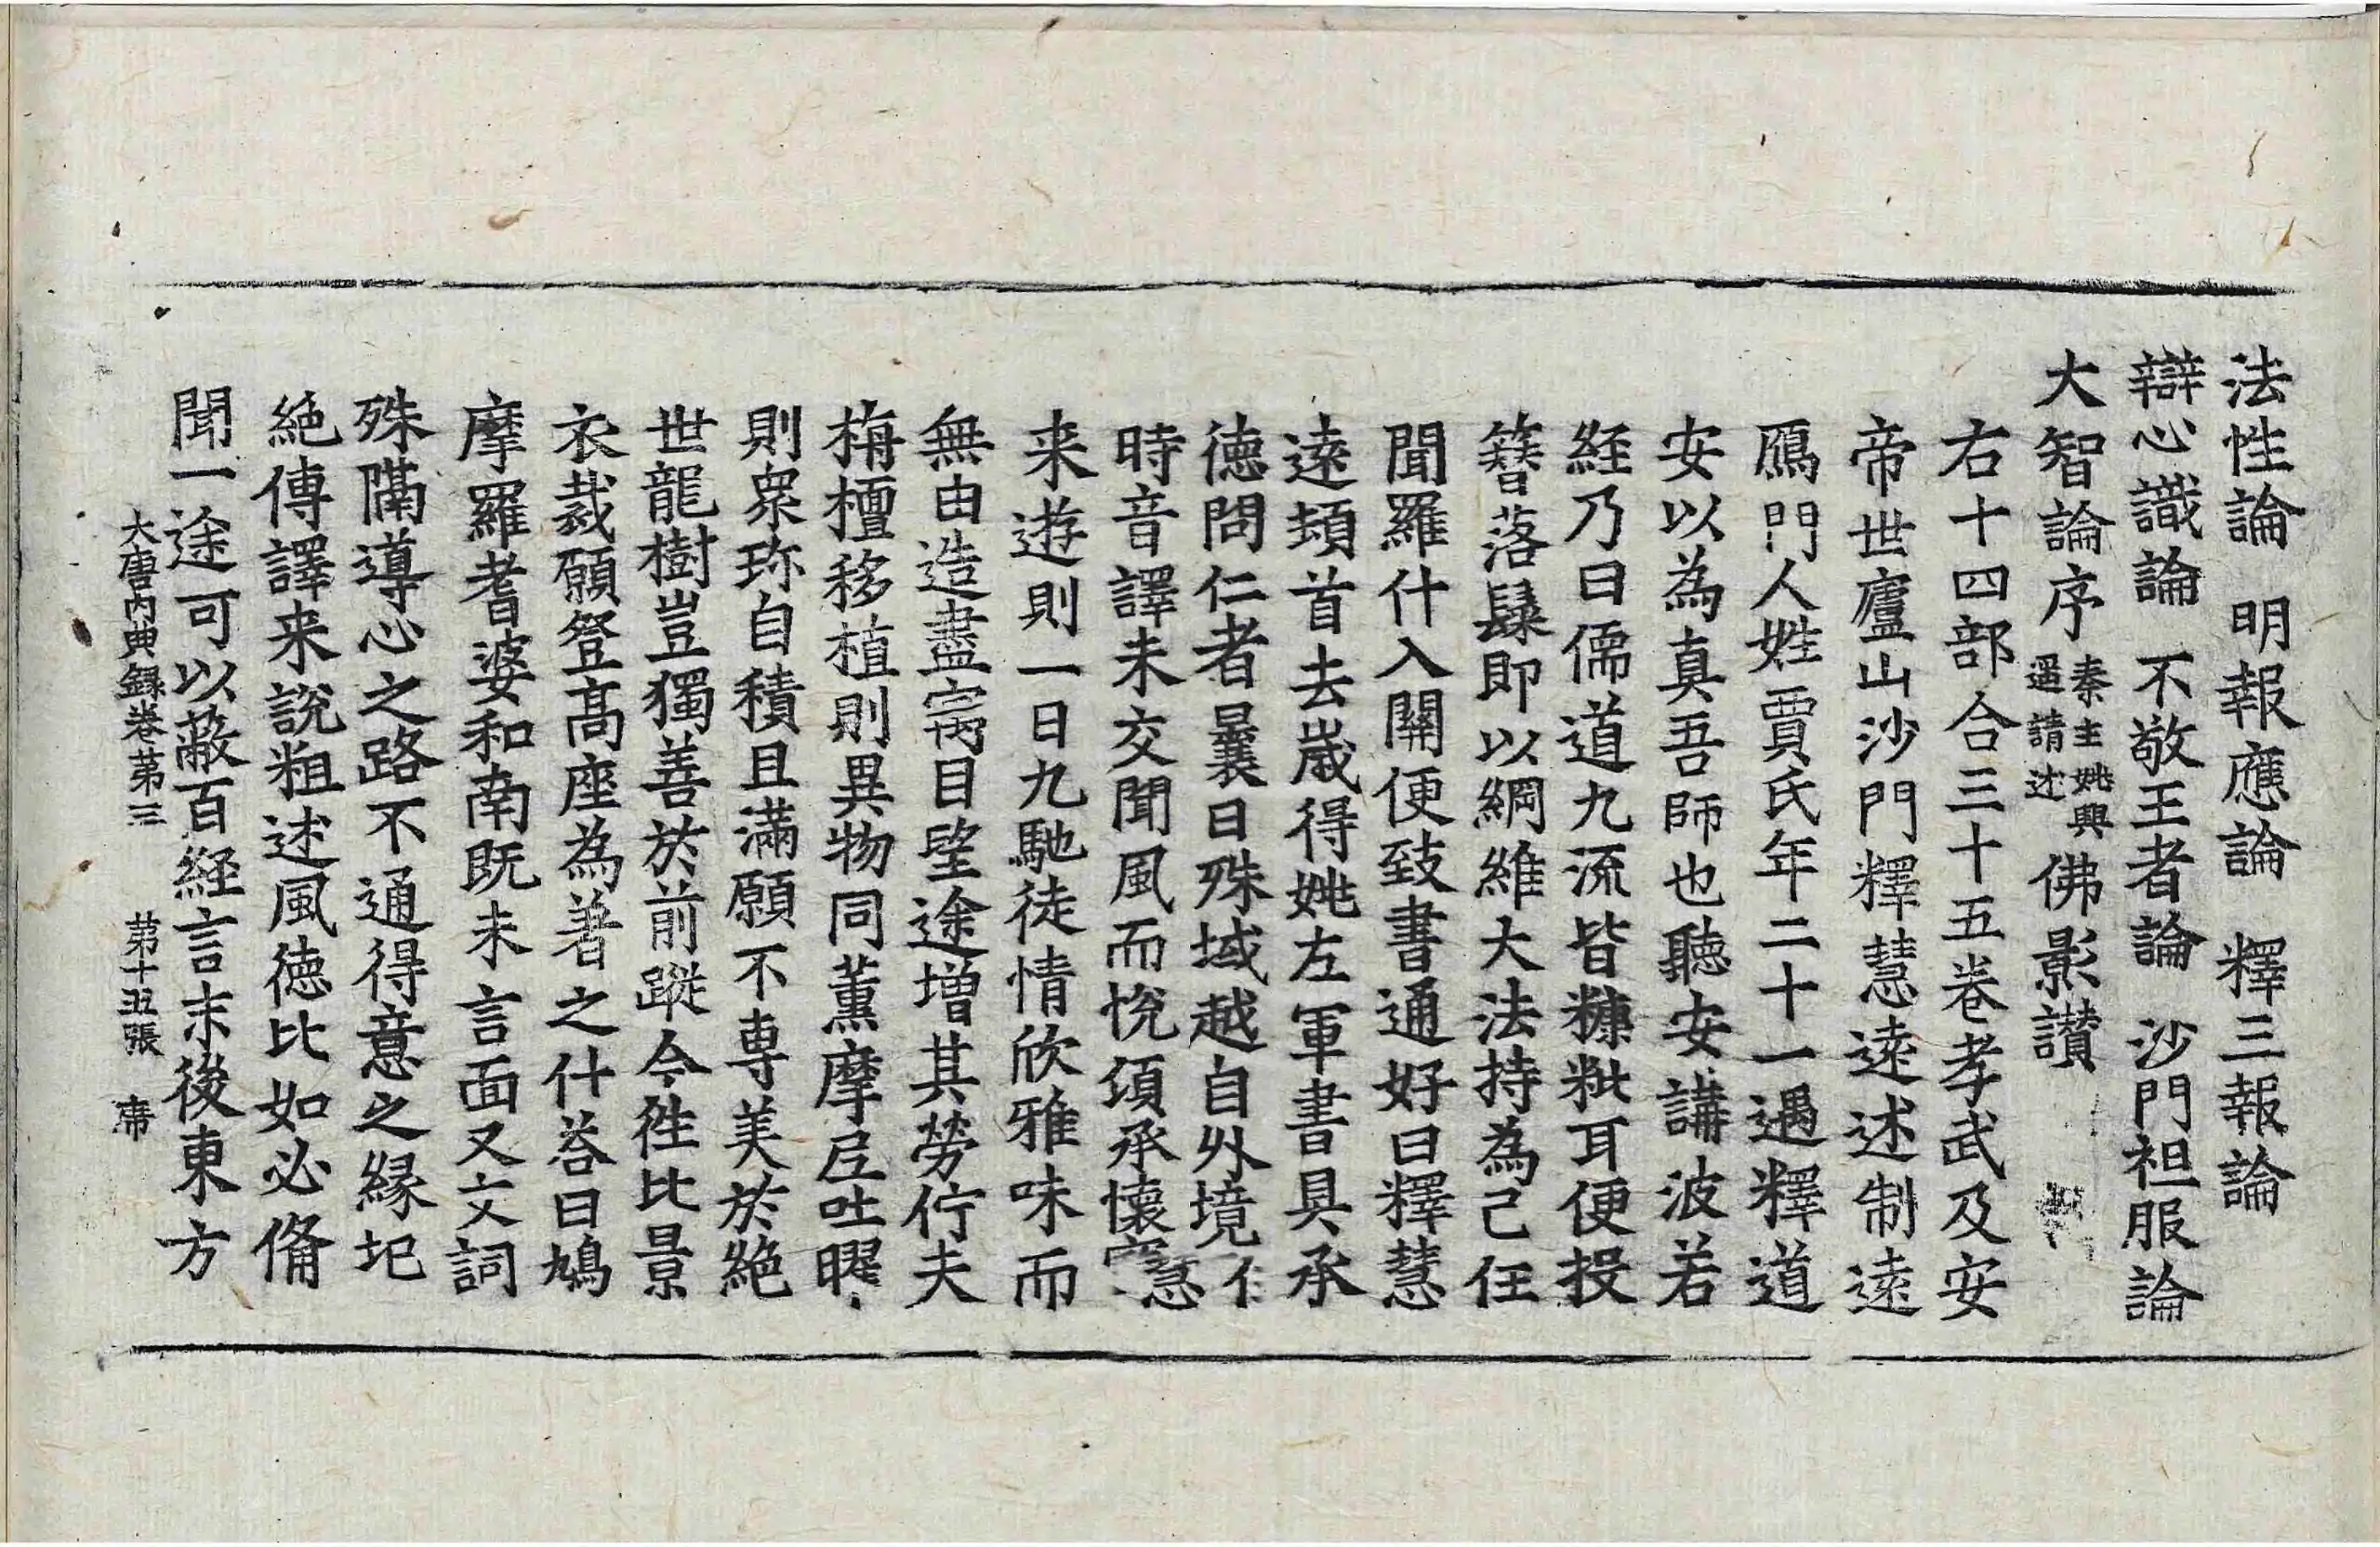 法性論 明報應論 釋三報論
辯心識論 不敬王者論 沙門袒服論
大智論序秦主姚興遥請述 佛影讃
右十四部合三十五卷孝武及安
帝世廬山沙門釋慧遠述制遠
鴈門人姓賈氏年二十一遇釋道
安以為真吾師也聽安講波若
経乃曰儒道九流皆糠粃耳便投
簪落䰂即以綱維大法持為己任
聞羅什入關便致書通好曰釋慧
遠頓首去嵗得姚左軍書具承
徳問仁者曩日殊域越自外境
時音譯未交聞風而恱頃承懷
来遊則一日九馳徒情欣雅味而
無由造盡寓目望途增其勞佇夫
栴檀移植則異物同薰摩尼吐曜
則衆珎自積且滿願不專美於絶
世龍樹豈獨善於前蹤今徃比景
衣裁願登髙座為著之什荅曰鳩
摩羅耆婆和南既未言面又文詞
殊隔導心之路不通得意之縁圮
絶傳譯来說粗述風徳比如必俻
聞一途可以蔽百経言末後東方
大唐内典録卷苐三 苐十五張 席